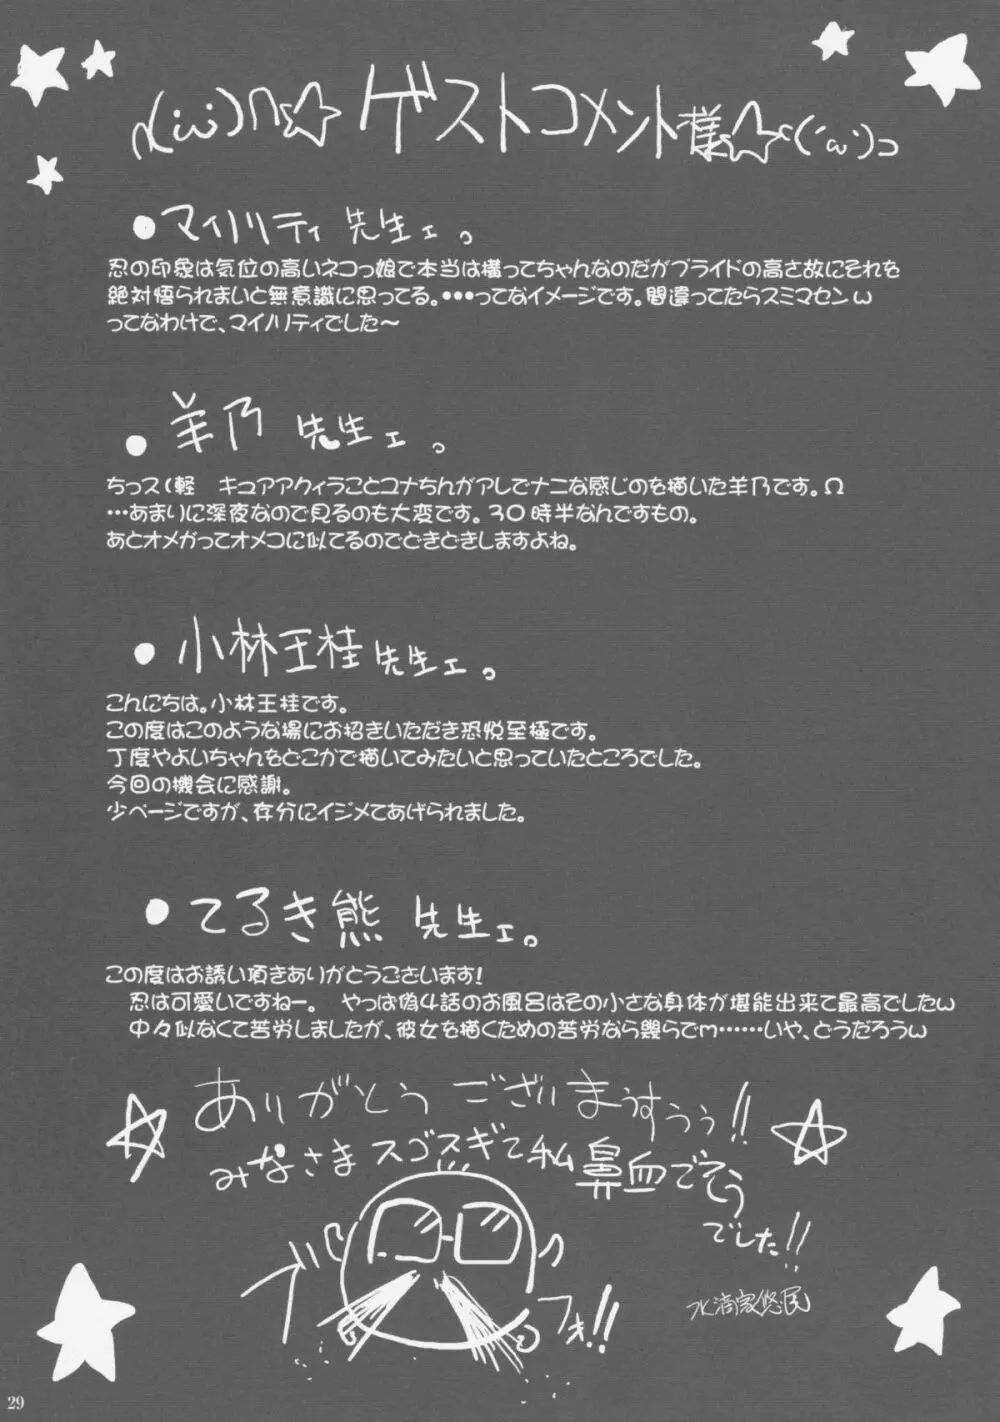 ゲストコメント様
●マイノリティ 先生ェ。
忍の印象は気位の高いネコっ娘で本当は構ってちゃんなのだがプライドの高さ故にそれを
絶対悟られまいと無意識に思ってる。•••ってなイメージです。間違ってたらスミマセンω
ってなわけで、マイノリティでした～
●羊乃 先生ェ。
ちっス(軽 キュアアクィラことユナちんがアレでナニな感じのを描いた羊乃です。Ω
…あまりに深夜なので見るのも大変です。30時半なんですもの。
あとオメガってオメコに似てるのでどきどきしますよね。
●小林王桂 先生ェ。
こんにちは。小林王桂です。
この度はこのような場にお招きいただき恐悦至極です。
丁度やよいちゃんをどこかで描いてみたいと思っていたところでした。
今回の機会に感謝。
少ページですが、存分にイジメてあげられました。
●てるき熊 先生ェ。
この度はお誘い頂きありがとうございます!
忍は可愛いですねー。 やっぱ偽4話のお風呂はその小さな身体が堪能出来て最高でしたω
中々似なくて苦労しましたが、彼女を描くための苦労なら幾らでm……いや、どうだろうω
ありがとうございまうすぅぅ!!
みなさまスゴスギて私鼻血でそう
でした!!
ブ
フォ!!
水滴家悠民
29